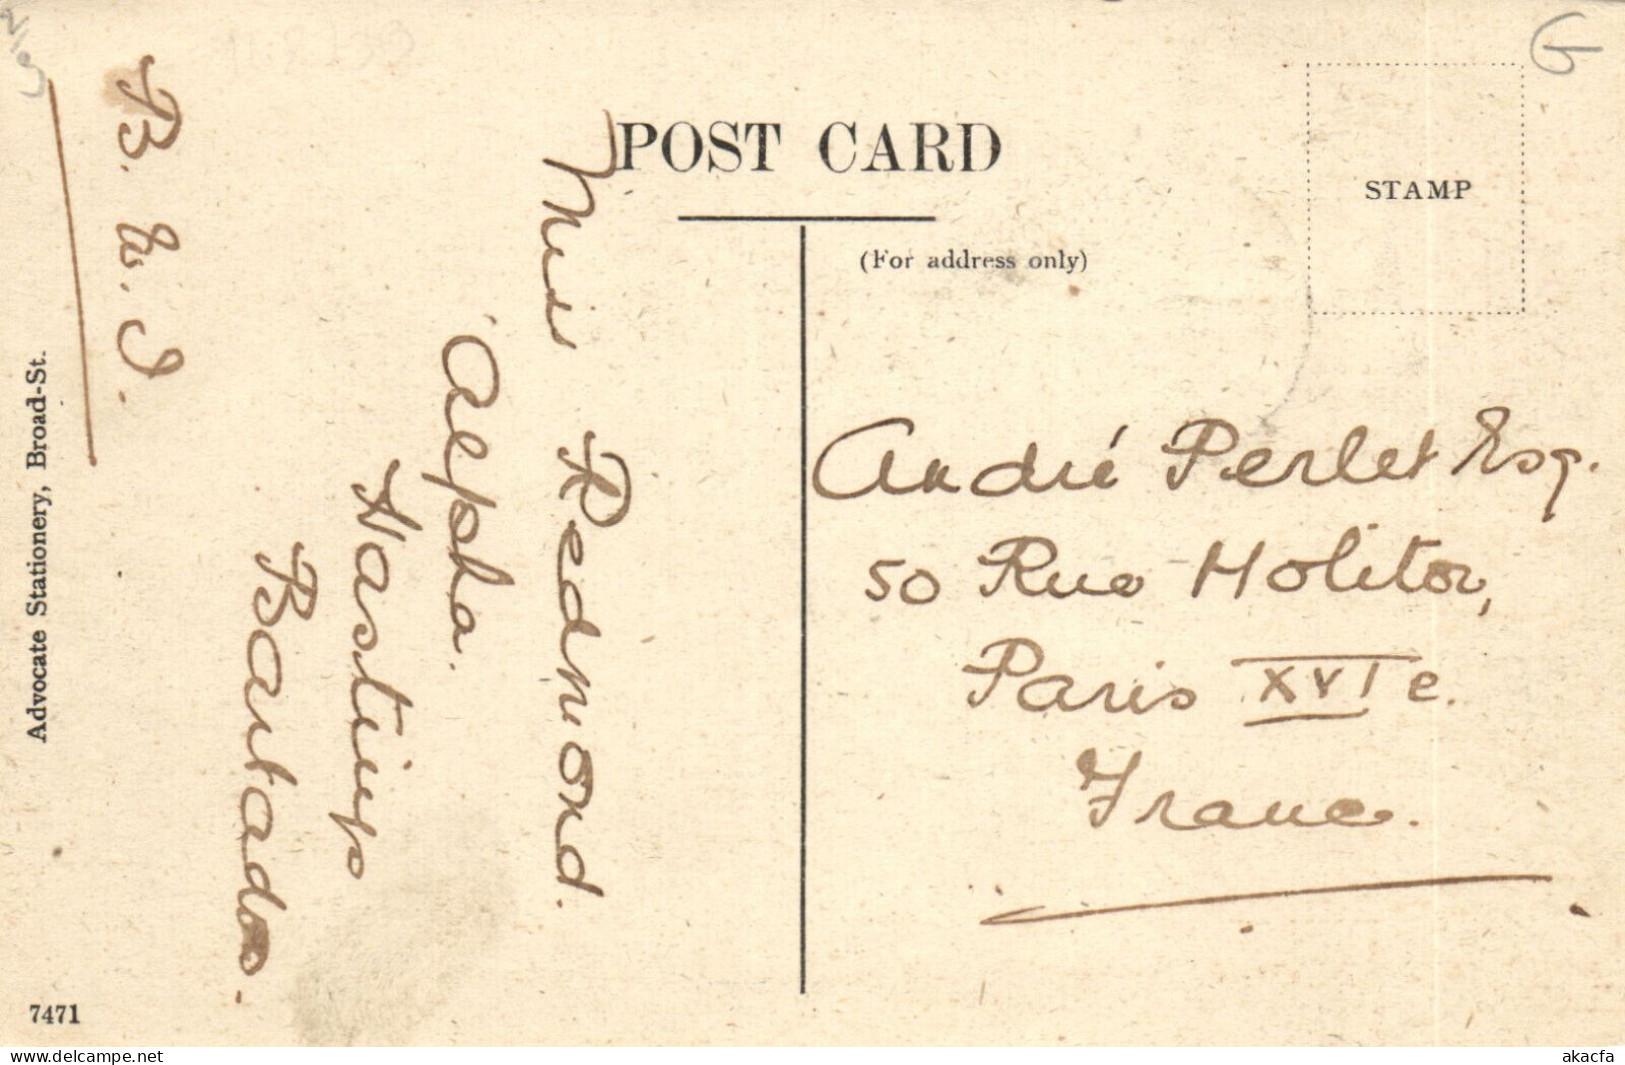 POST CARD
STAMP
(For address only)
Miss Redmond.
"Alpha.
Hastings
Barbados.
B. W. I.
André Perlet Esq.
50 Rue Molitor,
Paris XVI e.
France.
Advocate Stationery, Broad-St.
7471
www.delcampe.net
akacfa